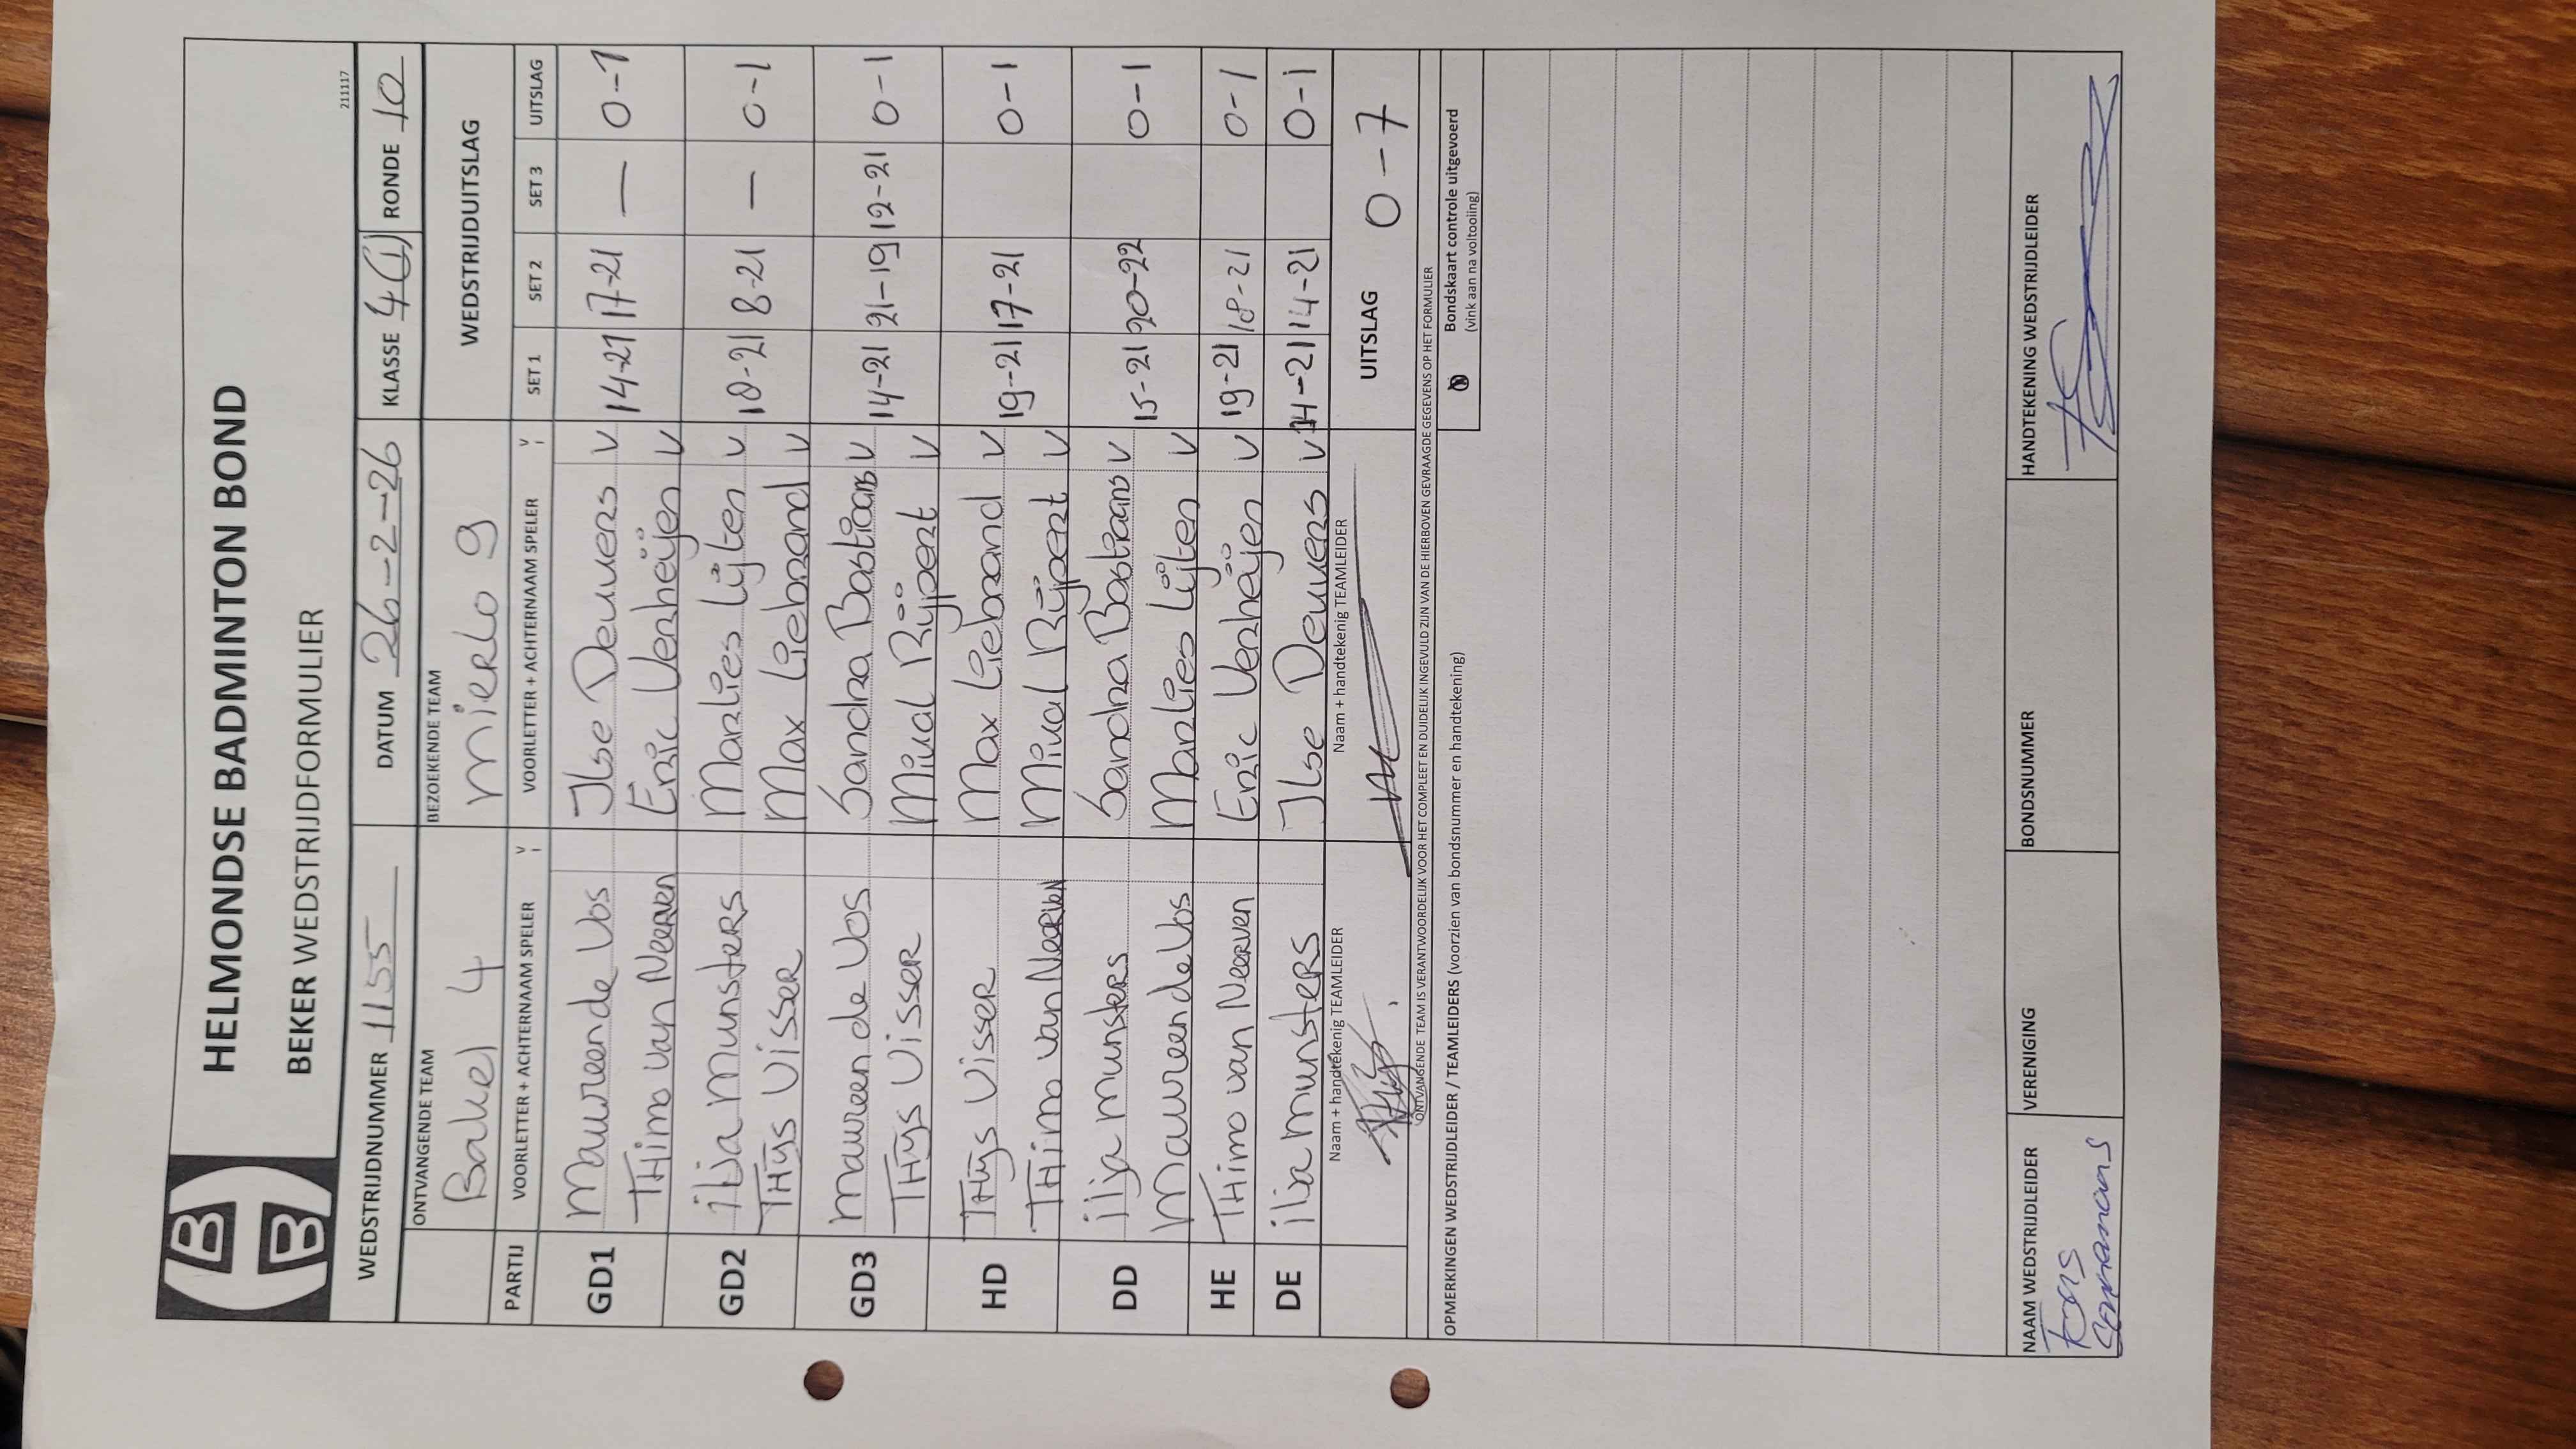 HELMONDSE BADMINTON BOND
BEKER WEDSTRIJDFORMULIER
211117
WEDSTRIJDNUMMER 1155 DATUM 26-2-26 KLASSE 4(1) RONDE 10
ONTVANGENDE TEAM BEZOEKENDE TEAM WEDSTRIJDUITSLAG
Bakel 4 Mierlo 9
PARTIJ VOORLETTER + ACHTERNAAM SPELER V VOORLETTER + ACHTERNAAM SPELER V SET 1 SET 2 SET 3 UITSLAG
GD1 Maureen de Vos Ilse Deuvers V 14-21 17-21 — 0-1
THimo van Neerven Eric Verheijen V
GD2 ilja Munsters Marlies Lijten V 18-21 8-21 — 0-1
THijs Visser Max Liebrand V
GD3 Maureen de Vos Sandra Bastiaans V 14-21 21-19 12-21 0-1
THijs Visser Mical Rijpert V
HD THijs Visser Max Liebrand V 19-21 17-21 0-1
THimo van Neerven Mical Rijpert V
DD ilja Munsters Sandra Bastiaans V 15-21 20-22 0-1
Maureen de Vos Marlies Lijten V
HE THimo van Neerven Eric Verheijen V 19-21 18-21 0-1
DE ilja Munsters Ilse Deuvers V 11-21 14-21 0-1
Naam + handtekenig TEAMLEIDER Naam + handtekenig TEAMLEIDER UITSLAG 0-7
ONTVANGENDE TEAM IS VERANTWOORDELIJK VOOR HET COMPLEET EN DUIDELIJK INGEVULD ZIJN VAN DE HIERBOVEN GEVRAAGDE GEGEVENS OP HET FORMULIER
OPMERKINGEN WEDSTRIJDLEIDER / TEAMLEIDERS (voorzien van bondsnummer en handtekening) Bondskaart controle uitgevoerd
(vink aan na voltooiing)
NAAM WEDSTRIJDLEIDER VERENIGING BONDSNUMMER HANDTEKENING WEDSTRIJDLEIDER
Fons